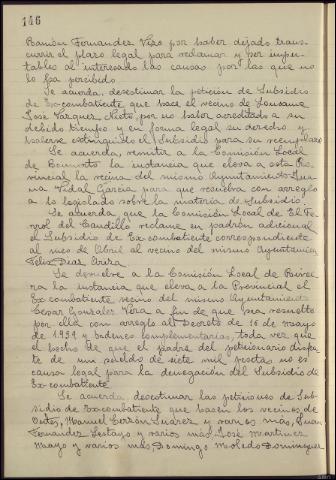 146
Ramón Fernandez Vizo por haber dejado trans-
currir el plazo legal para reclamar y ser impu-
tables al interesado las causas por las que no
lo ha percibido.
Se acuerda, desestimar la petición de Subsidio
de Ex-combatiente que hace el vecino de Lousame
José Vázquez Nieto, por no haber acreditado a su
debido tiempo y en forma legal su derecho y
haberse extinguido el Subsidio para su reemplazo
Se acuerda, remitir a la Comisión Local
de la instancia que eleva a esta Pro-
vincial la vecina del mismo Ayuntamiento Jua-
na Vidal García para que resuelva con arreglo
a lo legislado sobre la materia de Subsidio.
Se acuerda que la Comisión Local de El Fe-
rrol del Caudillo reclame en padrón adicional
el Subsidio de Ex-combatiente correspondiente
al mes de Abril al vecino del mismo Ayuntamiento
Felix Deaz
Se devuelve a la Comisión Local de
ra la instancia que eleva a la Provincial el
Ex-combatiente vecino del mismo Ayuntamiento
Cesar Gonzalez Vera a fin de que sea resuelto
por ella con arreglo al Decreto de 16 de mayo
de 1939 y órdenes complementarias, toda vez que
el hecho de que el padre del peticionario disfru-
te de un sueldo de siete mil pesetas no es
causa legal para la denegación del Subsidio de
Ex-combatiente
Se acuerda, desestimar las peticiones de Sub-
sidio de Ex-combatiente que hacen los vecinos de
Outes, Manuel Suárez y varios más, Juan
Fernandez Lestayo y varios más, José Martinez
Mayo y varios más, Domingo Moledo Dominguez